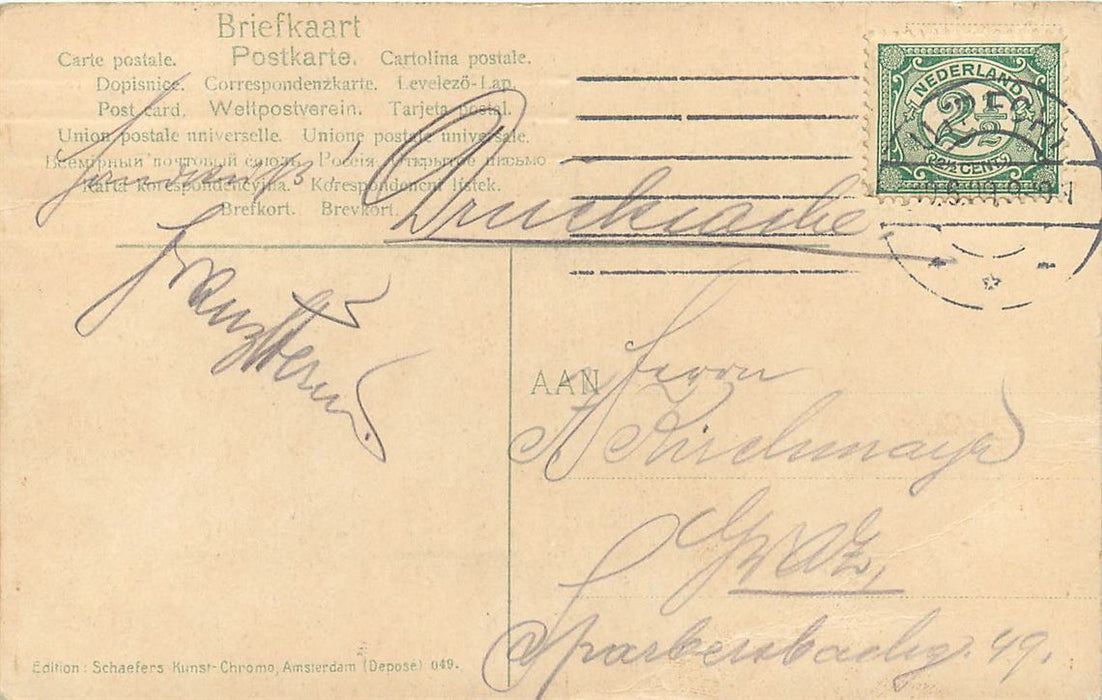 Briefkaart
Carte postale. Postkarte. Cartolina postale.
Dopisnice. Correspondenzkarte. Levelező-Lap.
Post card. Weltpostverein. Tarjeta postal.
Union postale universelle. Unione postale universale.
Всемірный почтовый союзъ. Россія. Открытое письмо
Karta korespondencyjna. Korespondenční lístek.
Brefkort. Brevkort.
NEDERLAND
2½
2½ CENT
Drucksache
Franz
AAN
Herrn
A Kirchmayr
Graz,
Sparbersbachg. 49.
Edition: Schaefers Kunst-Chromo, Amsterdam (Deposé) 049.